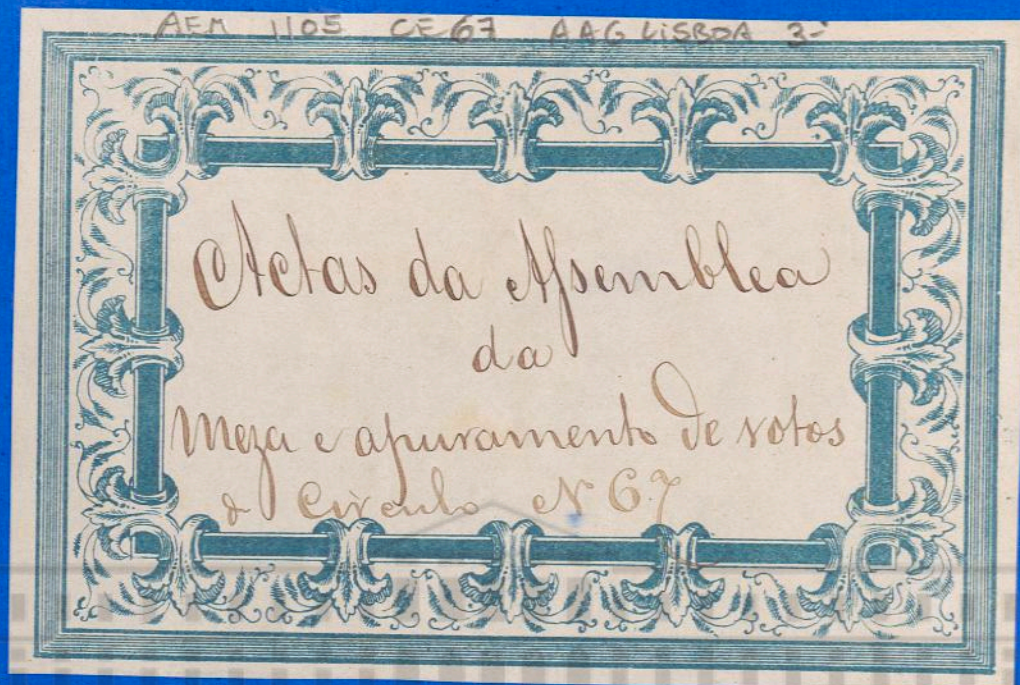 AEM 1105 CE 67 AAG LISBOA 3-
Actas da Assemblea
da
Meza e apuramento de votos
do Circulo Nº 67